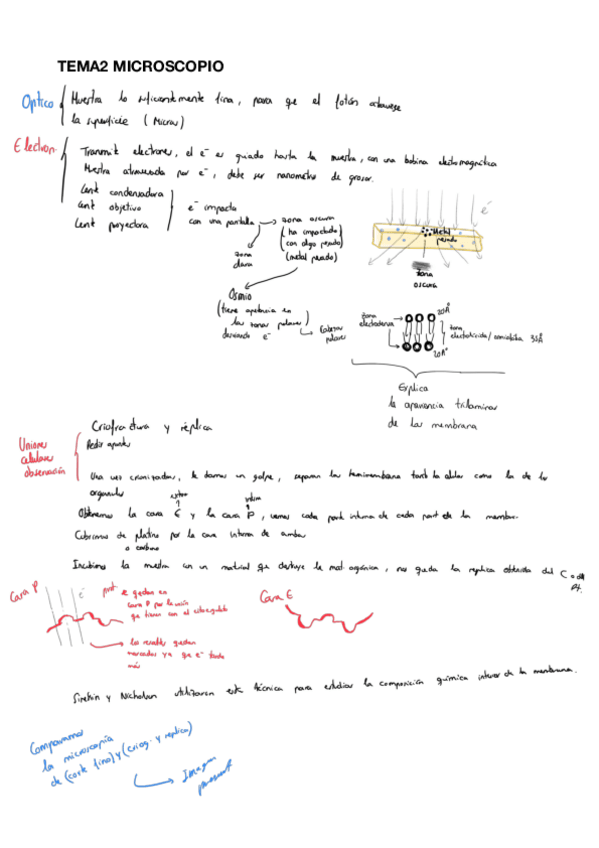 TEMA2 MICROSCOPIO
Optico Muestra lo suficientemente fina, para que el fotón atraviese
la superficie (Micras)
Electron. Transmit electrones, el e⁻ es guiado hasta la muestra, con una bobina electromagnética
Muestra atravesada por e⁻, debe ser nanometros de grosor.
Lent condensadora
Lent objetivo
Lent proyectora
e⁻ impacta
con una pantalla → zona oscura
(ha impactado
con algo pesado)
(metal pesado)
zona
clara
e⁻
Metal
pesado
zona
oscura
Osmio
(tiene apetencia en
las zonas polares)
desviando e⁻
Cabezas
polares
zona
electrodensa
20Å
zona
35Å
20Å
Explica
la apariencia trilaminar
de las membrana
Criofractura y réplica
Uniones
celulares
observación
Pedir apuntes
Una vez crionizadas, le damos un golpe, separan las hemimembrana tanto la celular como la de los
organulos
Obtenemos la cara E y la cara P, vemos cada parte interna de cada part de la membr.
Cubrimos de platino por la cara interna de ambas
o carbono
Incubamos la muestra con un material que destruye la mat orgánica, nos queda la replica obtenida del C o del
Pt.
Cara P
e⁻
prot se quedan en
cara P por la unión
que tienen con el citoesqueleto
Cara E
los resaltes quedan
marcados ya que e⁻ tarda
más
y Nicholson utilizaron esta técnica para estudiar la composición química interior de la membrana.
Comparamos
la microscopía
de (corte fino) y (criog. y replica)
→ Imagen